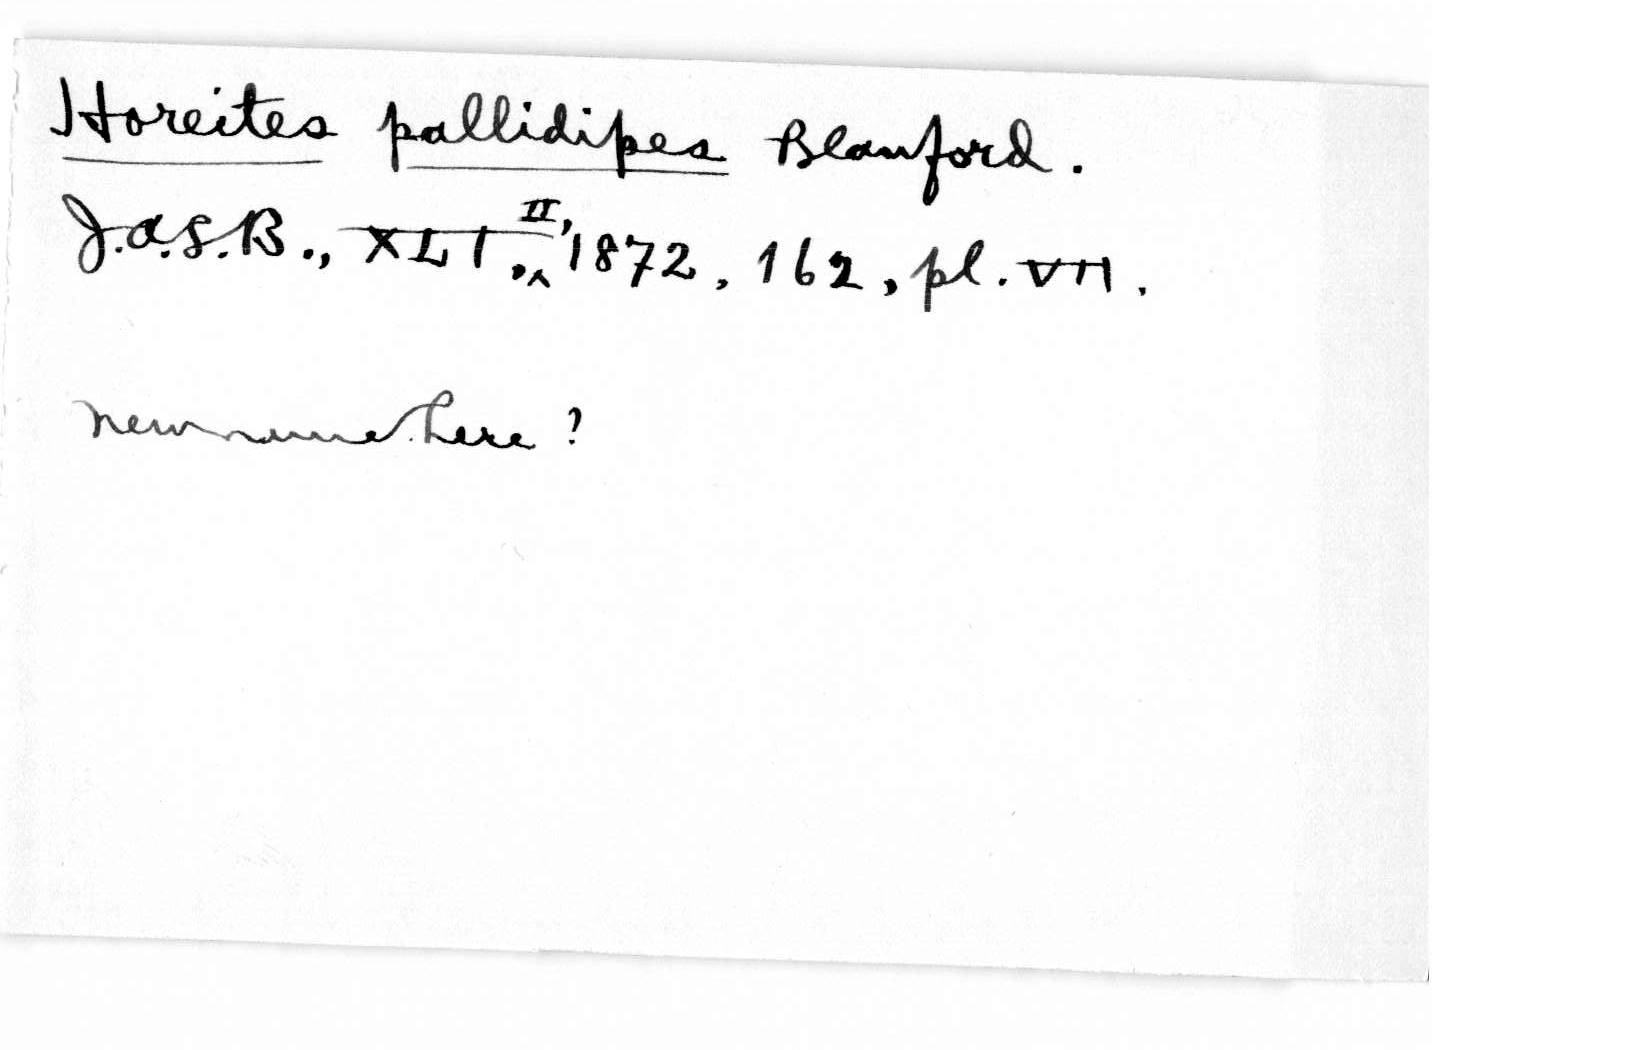 Horeites pallidipes Blanford.
J.A.S.B., XLI, II, 1872, 162, pl. VII.
new name here?